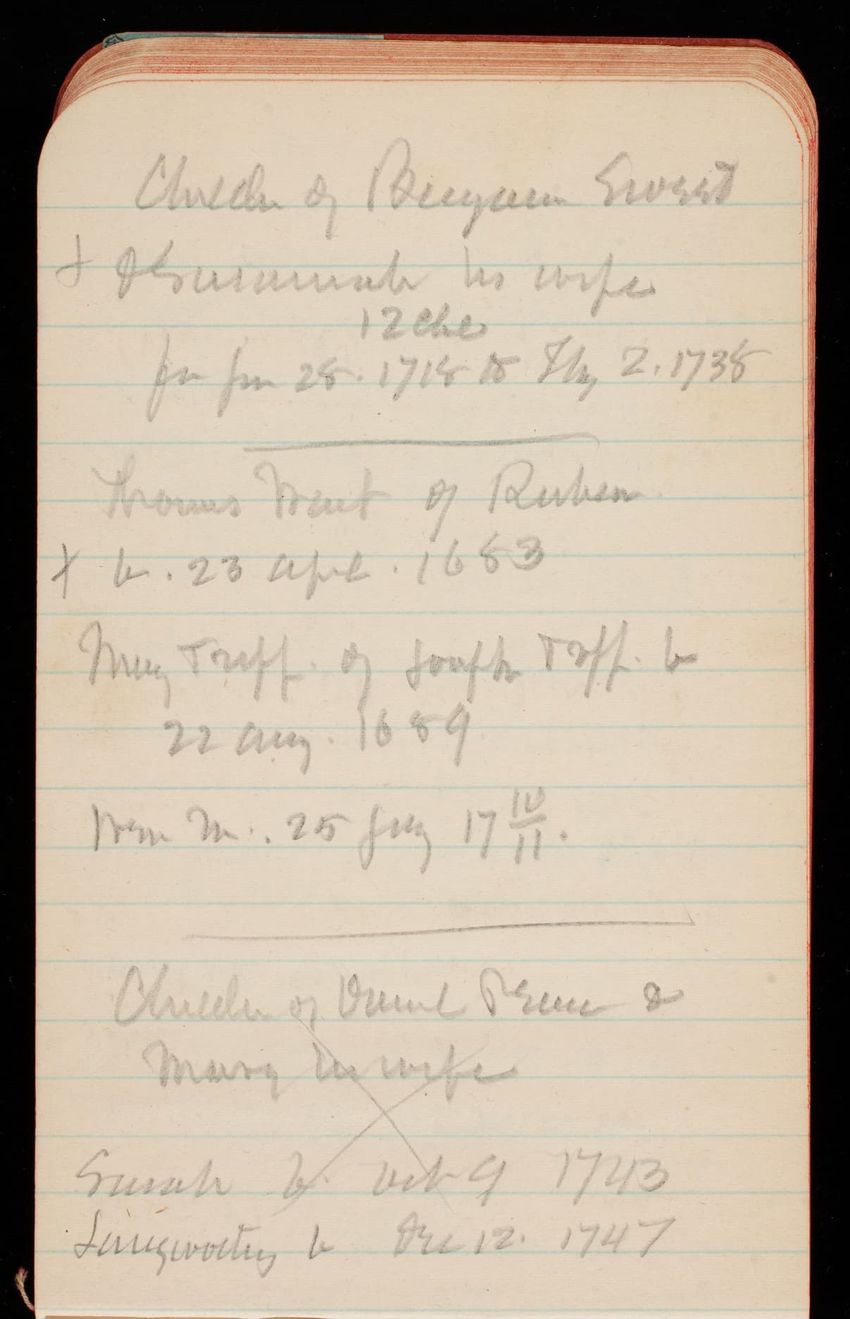 Children of Benjamin Sweet
+ & Susannah his wife
12 che
fr Jan 28. 1718 to 2. 1738
Thomas Wait of Ruben
+ b. 23 Apl. 1683
Mary Treff. of Joseph Treff. b
22 Aug. 1689
Were M. 25 17 10/11.
Children of Daniel &
Mary his wife
Sarah b. Oct 9 1743
Langworthy b Dec 12. 1747